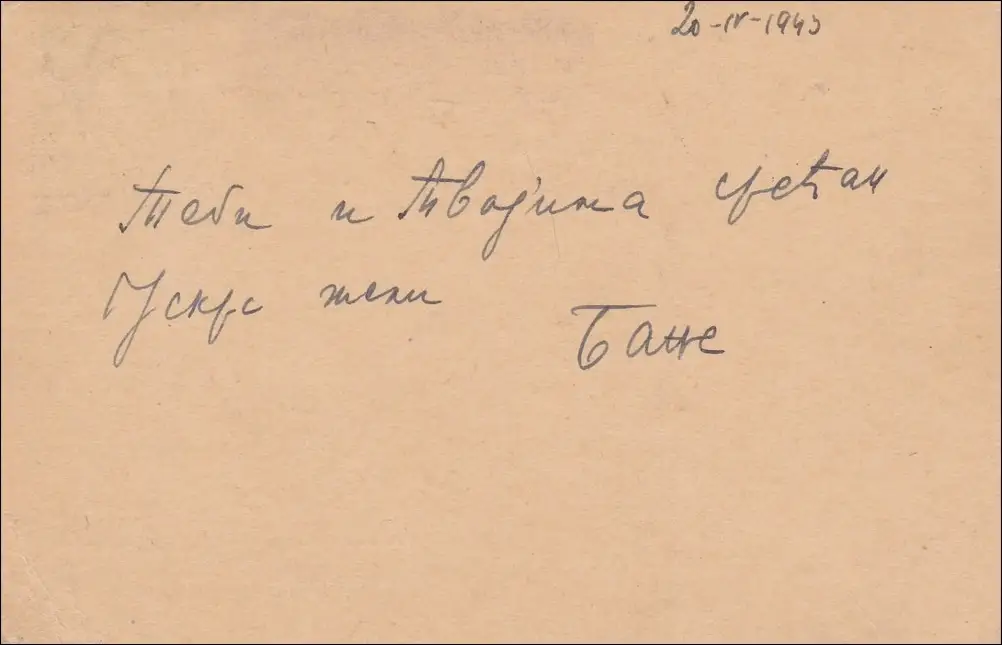 20-IV-1943
Теби и Твојима срећан
Ускрс жели
Бане